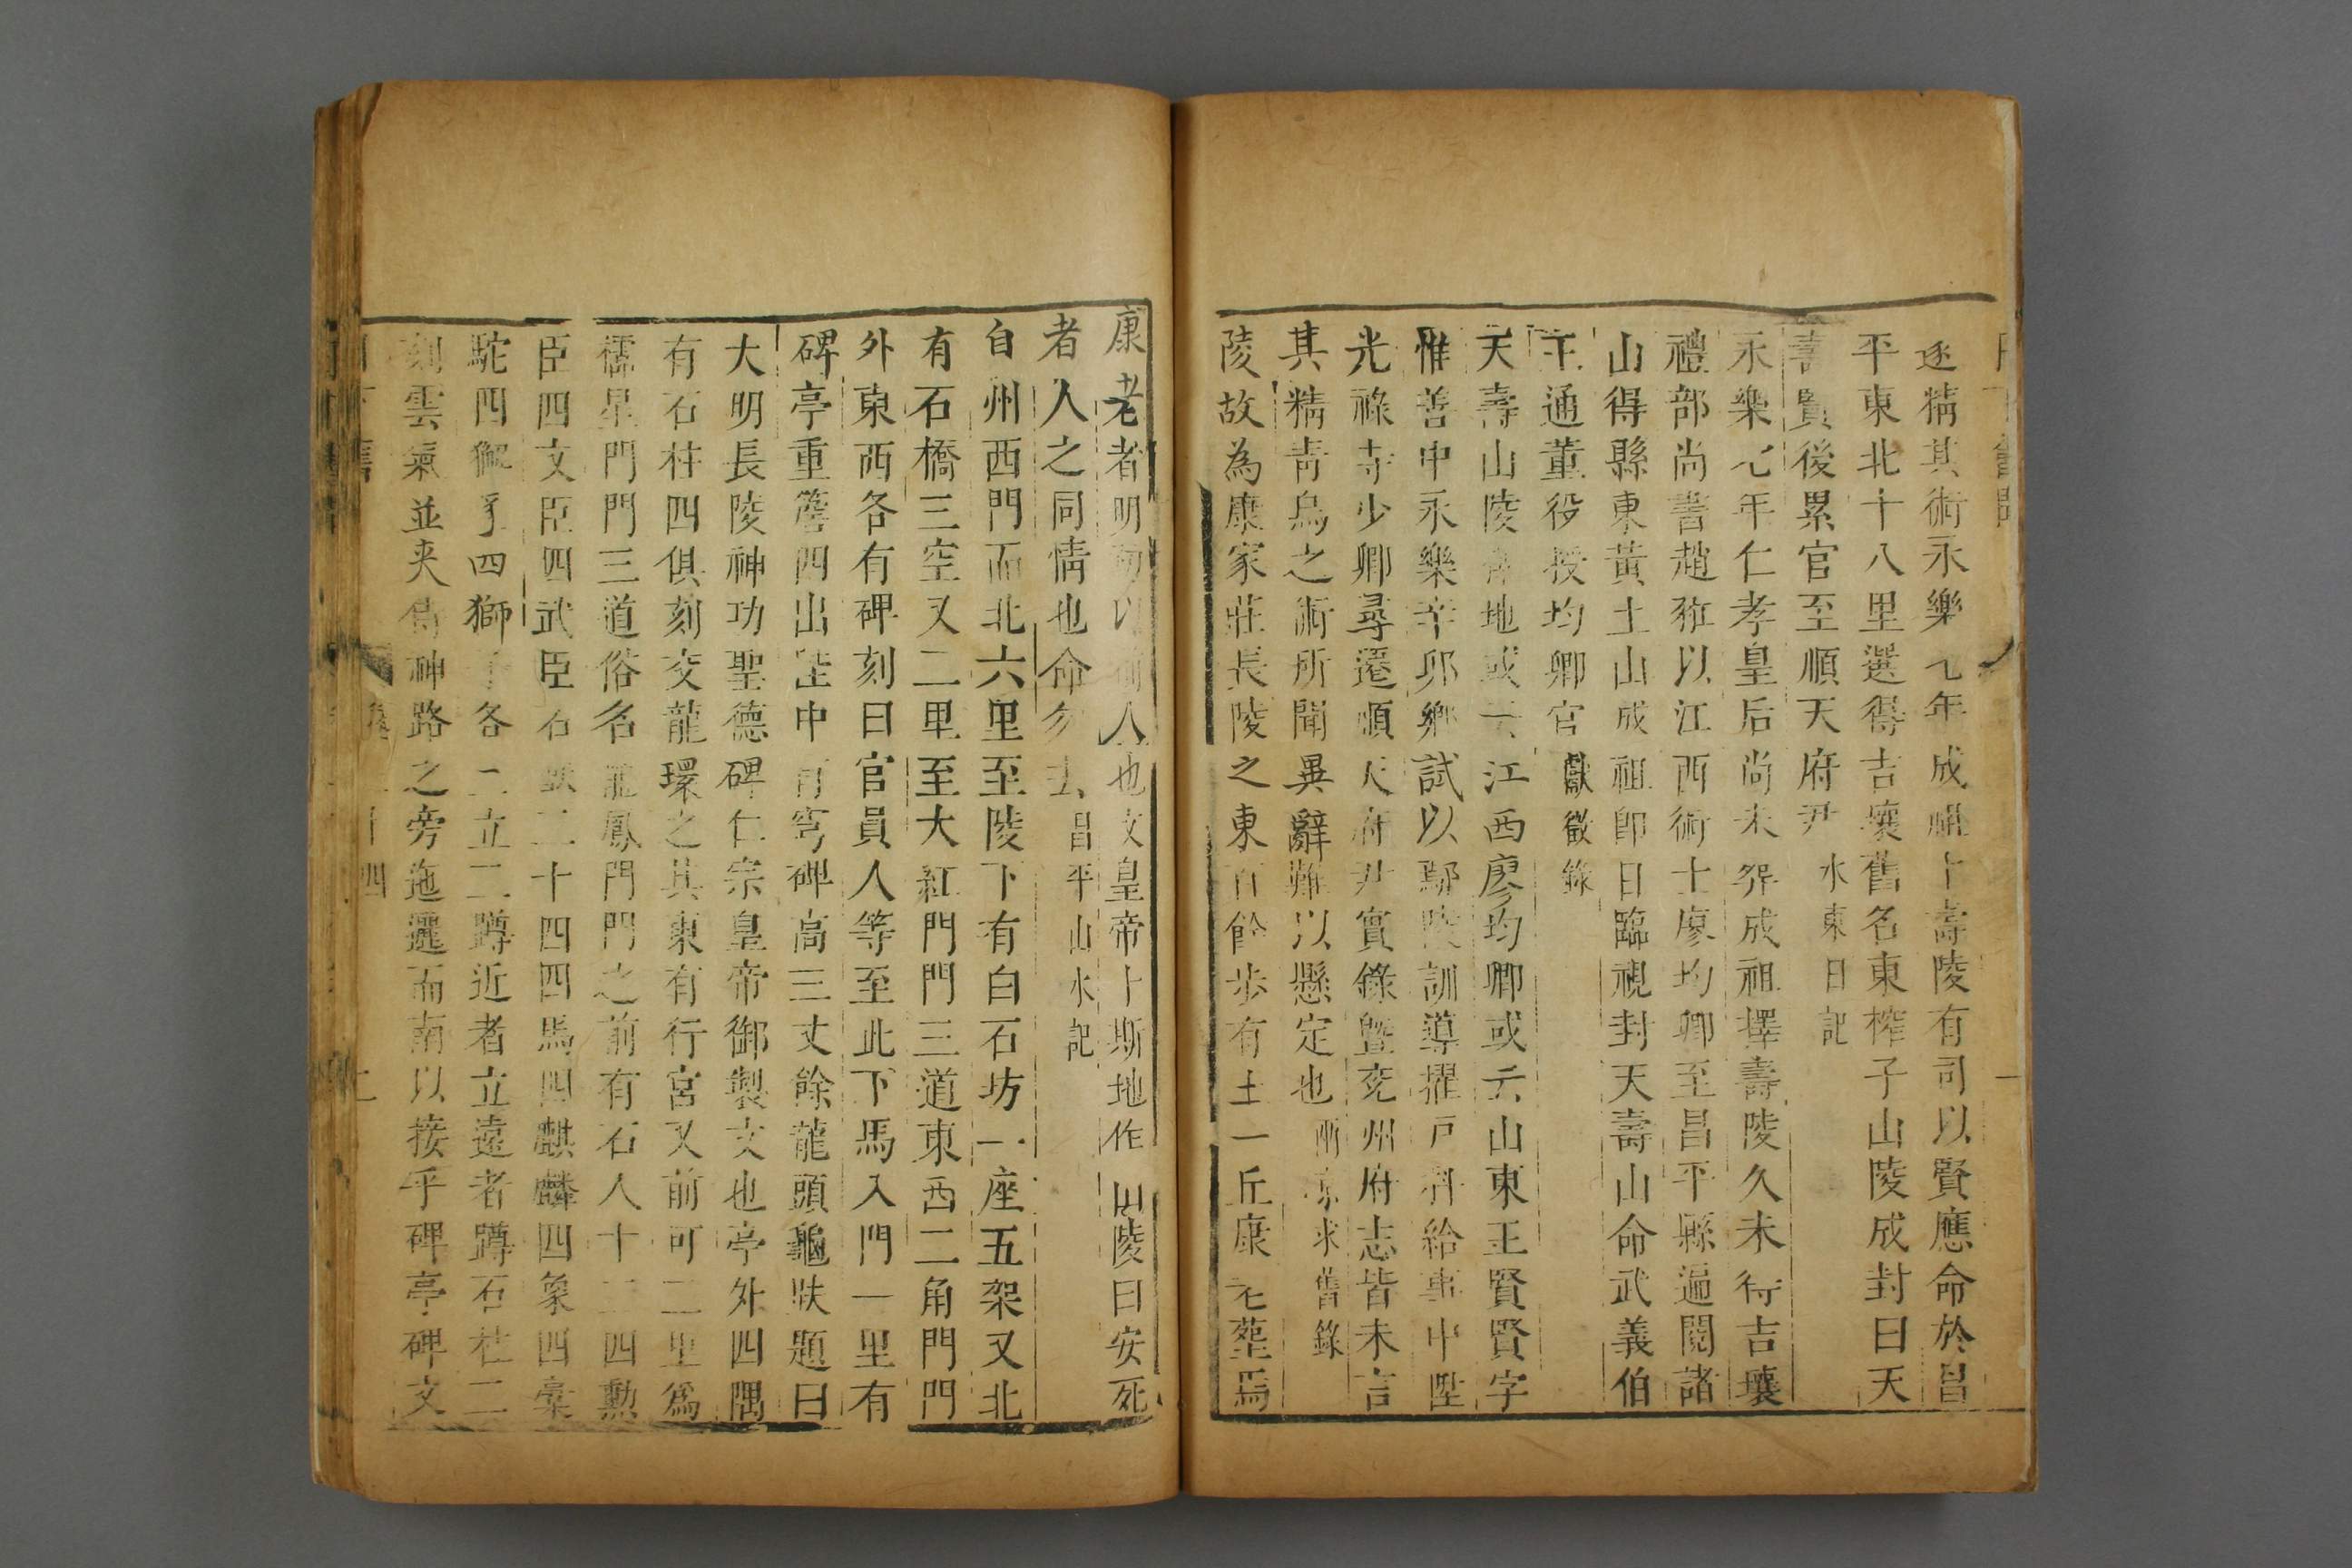 遂精其術永樂七年成祖卜壽陵有司以賢應命於昌
平東北十八里選得吉壤舊名東榨子山陵成封曰天
壽賢後累官至順天府尹 水東日記
永樂七年仁孝皇后尚未塟成祖擇壽陵久未得吉壤
禮部尚書趙羾以江西術士廖均卿至昌平縣遍閱諸
山得縣東黃土山成祖卽日臨視封天壽山命武義伯
王通董役授均卿官 獻徵錄
天壽山陵 地或云江西廖均卿或云山東王賢賢字
惟善中永樂辛卯鄉試以鄢陵訓導擢戸科給事中陞
光祿寺少卿尋遷順天府尹實錄曁兗州府志皆未言
其精靑烏之術所聞異辭難以懸定也 求舊錄
陵故為康家莊長陵之東百餘步有土一丘康老塟焉
康老者明初以前人也文皇帝卜斯地作山陵曰安死
者人之同情也命勿去 昌平山水記
自州西門而北六里至陵下有白石坊一座五架又北
有石橋三空又二里至大紅門門三道東西二角門門
外東西各有碑刻曰官員人等至此下馬入門一里有
碑亭重簷四出陛中有穹碑高三丈餘龍頭龜趺題曰
大明長陵神功聖德碑仁宗皇帝御製文也亭外四隅
有石柱四俱刻交龍環之其東有行宮又前可二里爲
櫺星門門三道俗名龍鳳門門之前有石人十二四勲
臣四文臣四武臣石獸二十四四馬四麒麟四象四橐
駝四獬豸四獅子各二立二蹲近者立遠者蹲石柱二
刻雲氣並夾侍神路之旁迤邐而南以接乎碑亭碑文